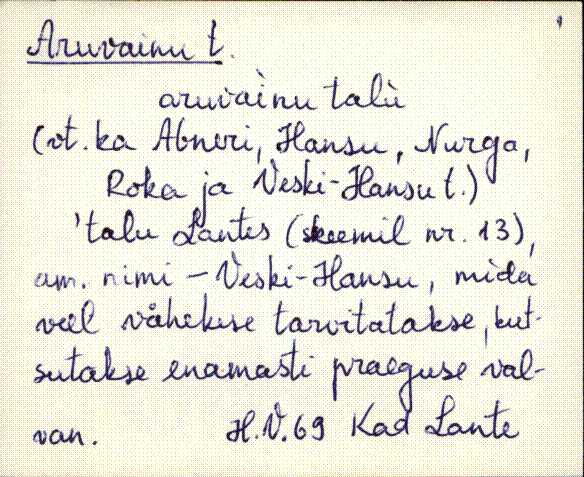 Aruvainu t.
aruvàinu talù
(vt. ka Abneri, Hansu, Nurga,
Roka ja Veski-Hansu t.)
'talu Lantes (skeemil nr. 13),
am. nimi – Veski-Hansu, mida
veel vähekese tarvitatakse, kut-
sutakse enamasti praeguse val-
van. H.V.69 Kad Lante